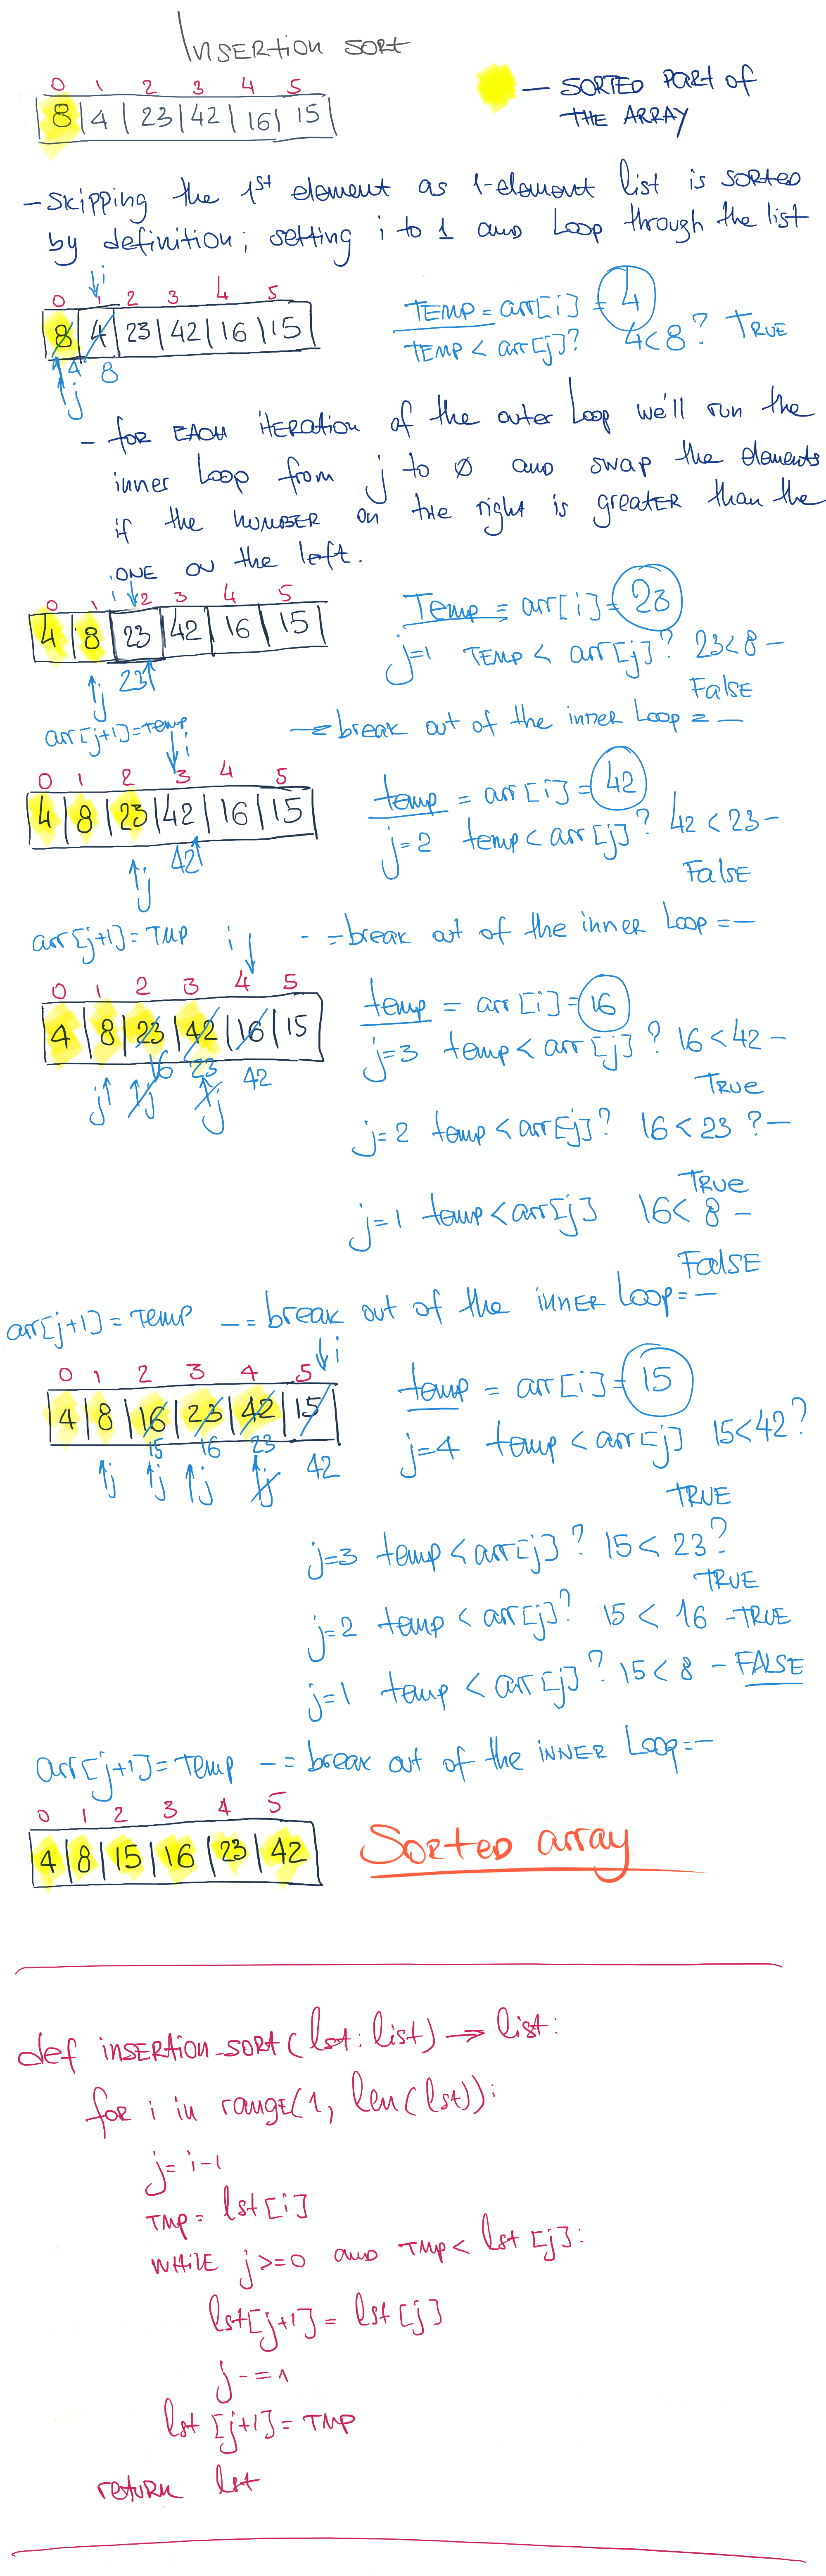 Insertion sort
0 1 2 3 4 5
8 4 23 42 16 15
— sorted part of
the array
- skipping the 1st element as 1-element list is sorted
by definition; setting i to 1 and loop through the list
i
0 1 2 3 4 5
8 4 23 42 16 15
4 8
j
temp = arr[i] = 4
temp < arr[j]? 4<8? True
- for each iteration of the outer loop we'll run the
inner loop from j to 0 and swap the elements
if the number on the right is greater than the
one on the left.
i
0 1 2 3 4 5
4 8 23 42 16 15
j 23
Temp = arr[i] = 23
j=1 temp < arr[j]? 23<8 —
False
arr[j+1]=temp
—= break out of the inner loop = —
i
0 1 2 3 4 5
4 8 23 42 16 15
j 42
temp = arr[i] = 42
j=2 temp < arr[j]? 42 < 23 —
False
arr[j+1] = tmp
- = break out of the inner loop = —
i
0 1 2 3 4 5
4 8 23 42 16 15
16 23 42
j j j
temp = arr[i] = 16
j=3 temp < arr[j]? 16 < 42 —
True
j=2 temp < arr[j]? 16 < 23 ? —
True
j=1 temp < arr[j] 16 < 8 —
False
arr[j+1] = temp — = break out of the inner loop = —
i
0 1 2 3 4 5
4 8 16 23 42 15
15 16 23 42
j j j j
temp = arr[i] = 15
j=4 temp < arr[j] 15<42?
True
j=3 temp < arr[j]? 15 < 23?
True
j=2 temp < arr[j]? 15 < 16 - True
j=1 temp < arr[j]? 15 < 8 - False
arr[j+1] = temp — = break out of the inner loop = —
0 1 2 3 4 5
4 8 15 16 23 42
Sorted array
def insertion_sort(lst: list) → list:
for i in range(1, len(lst)):
j = i-1
tmp = lst[i]
while j >= 0 and tmp < lst[j]:
lst[j+1] = lst[j]
j -= 1
lst[j+1] = tmp
return lst